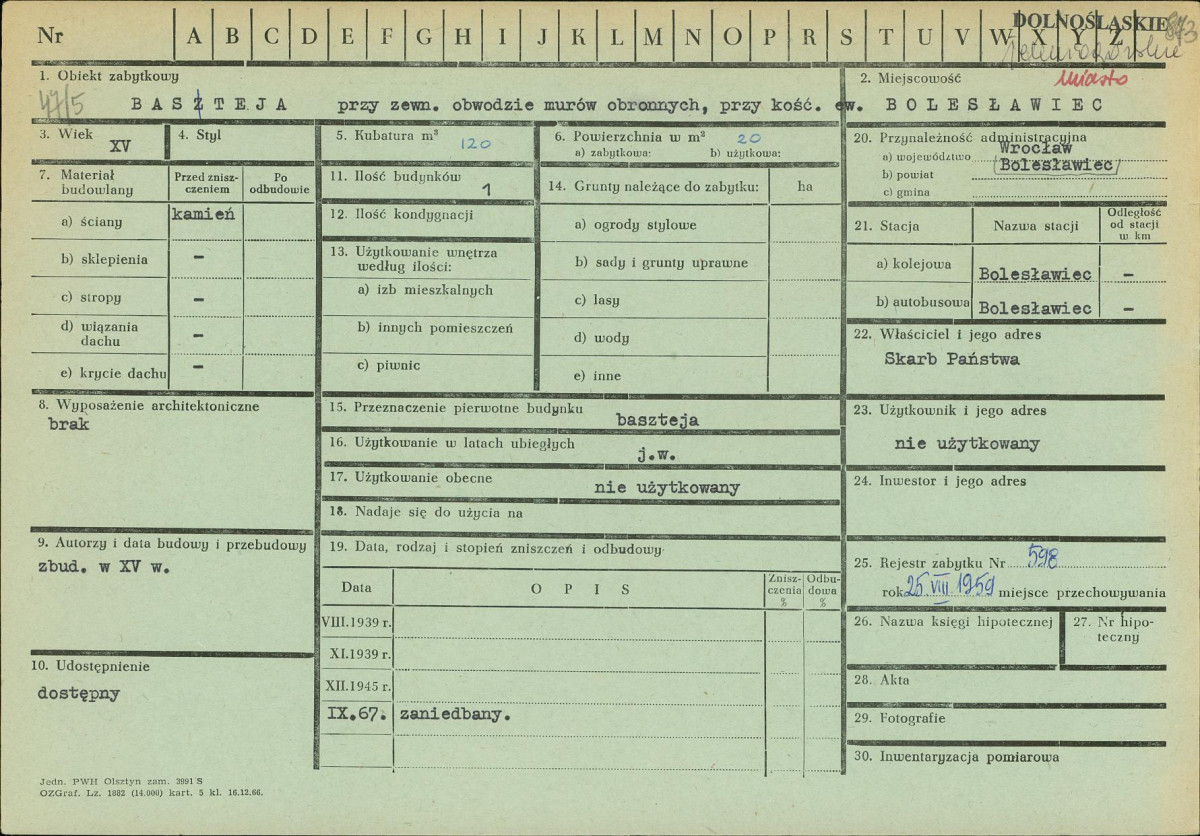 Nr A B C D E F G H I J K L M N O P R S T U V W X Y Z
DOLNOŚLĄSKIE
873
1. Obiekt zabytkowy
47/5
BASZTEJA przy zewn. obwodzie murów obronnych, przy kość. ew.
2. Miejscowość
miasto
BOLESŁAWIEC
3. Wiek
XV
4. Styl
5. Kubatura m³
120
6. Powierzchnia w m²
20
a) zabytkowa: b) użytkowa:
7. Materiał budowlany
Przed znisz-
czeniem
Po
odbudowie
a) ściany kamień
b) sklepienia –
c) stropy –
d) wiązania
dachu –
e) krycie dachu –
8. Wyposażenie architektoniczne
brak
9. Autorzy i data budowy i przebudowy
zbud. w XV w.
10. Udostępnienie
dostępny
11. Ilość budynków
1
12. Ilość kondygnacji
13. Użytkowanie wnętrza
według ilości:
a) izb mieszkalnych
b) innych pomieszczeń
c) piwnic
14. Grunty należące do zabytku: ha
a) ogrody stylowe
b) sady i grunty uprawne
c) lasy
d) wody
e) inne
15. Przeznaczenie pierwotne budynku
baszteja
16. Użytkowanie w latach ubiegłych
j.w.
17. Użytkowanie obecne
nie użytkowany
18. Nadaje się do użycia na
19. Data, rodzaj i stopień zniszczeń i odbudowy
Data OPIS Znisz-
czenia
% Odbu-
dowa
%
VIII.1939 r.
XI.1939 r.
XII.1945 r.
IX.67. zaniedbany.
20. Przynależność administracyjna
a) województwo Wrocław
b) powiat (Bolesławiec)
c) gmina
21. Stacja Nazwa stacji Odległość
od stacji
w km
a) kolejowa Bolesławiec –
b) autobusowa Bolesławiec –
22. Właściciel i jego adres
Skarb Państwa
23. Użytkownik i jego adres
nie użytkowany
24. Inwestor i jego adres
25. Rejestr zabytku Nr 598
rok 25.VIII.1959 miejsce przechowywania
26. Nazwa księgi hipotecznej
27. Nr hipo-
teczny
28. Akta
29. Fotografie
30. Inwentaryzacja pomiarowa
Jedn. PWH Olsztyn zam. 3991 S
OZGraf. Lz. 1882 (14.000) kart. 5 kl. 16.12.66.